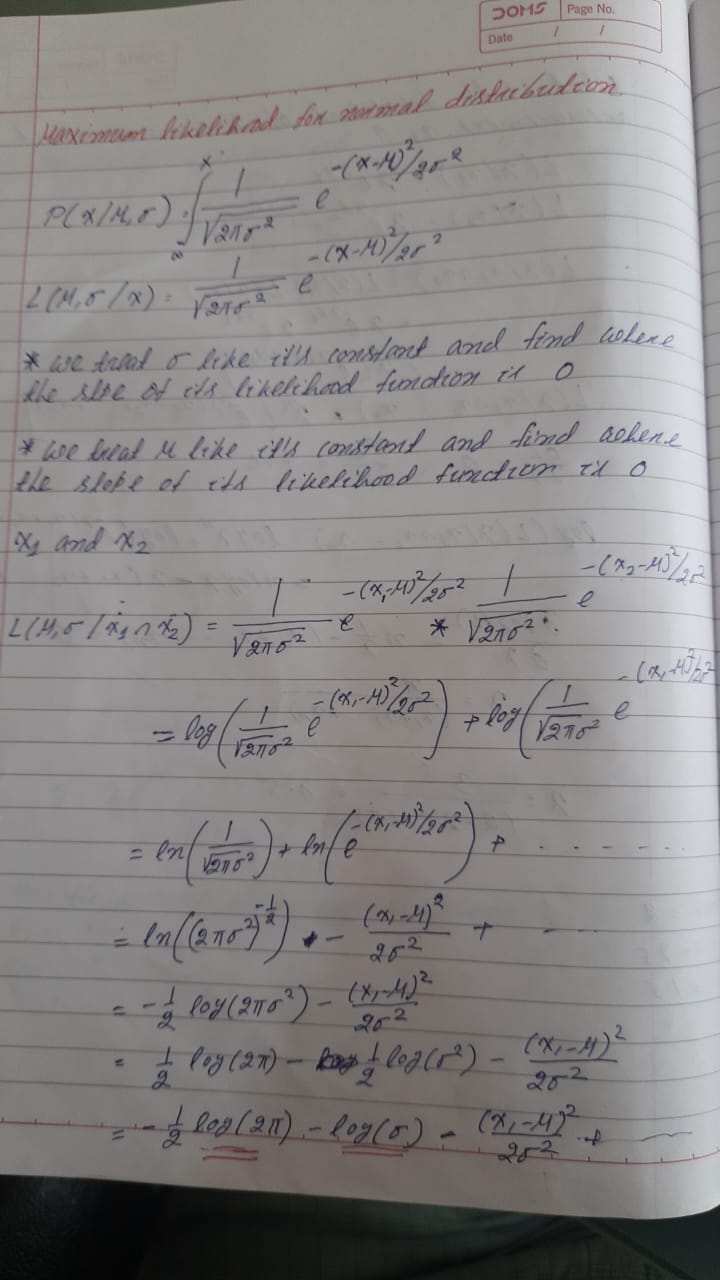 DOMS Page No.
Date / /
Maximum likelihood for normal distribution.
P(x/μ,σ) ∫ₓ^∞ 1/√2πσ² e^-(x-μ)²/2σ²
L(μ,σ/x) = 1/√2πσ² e^-(x-μ)²/2σ²
* we treat σ like it's constant and find where
the slpe of its likelihood function is 0
* we treat μ like it's constant and find where
the slope of its likelihood function is 0
x₁ and x₂
L(μ,σ/x₁∩x₂) = 1/√2πσ² e^-(x₁-μ)²/2σ² * 1/√2πσ² e^-(x₂-μ)²/2σ²
= log(1/√2πσ² e^-(x₁-μ)²/2σ²) + log(1/√2πσ² e^-(x₁-μ)²/2σ²
= ln(1/√2πσ²) + ln(e^-(x₁-μ)²/2σ²) + - - - - - -
= ln((2πσ²)^-1/2) - (x₁-μ)²/2σ² + - - -
= -1/2 log(2πσ²) - (x₁-μ)²/2σ²
= 1/2 log(2π) - 1/2 log(σ²) - (x₁-μ)²/2σ²
= -1/2 log(2π) - log(σ) - (x₁-μ)²/2σ² +